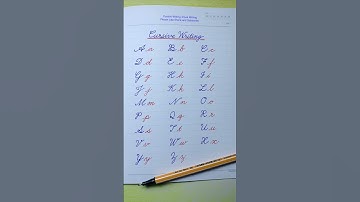 Cursive Writing
A a B b C c
D d E e F f
G g H h I i
J j K k L l
M m N n O o
P p Q q R r
S s T t U u
V v W w X x
Y y Z z